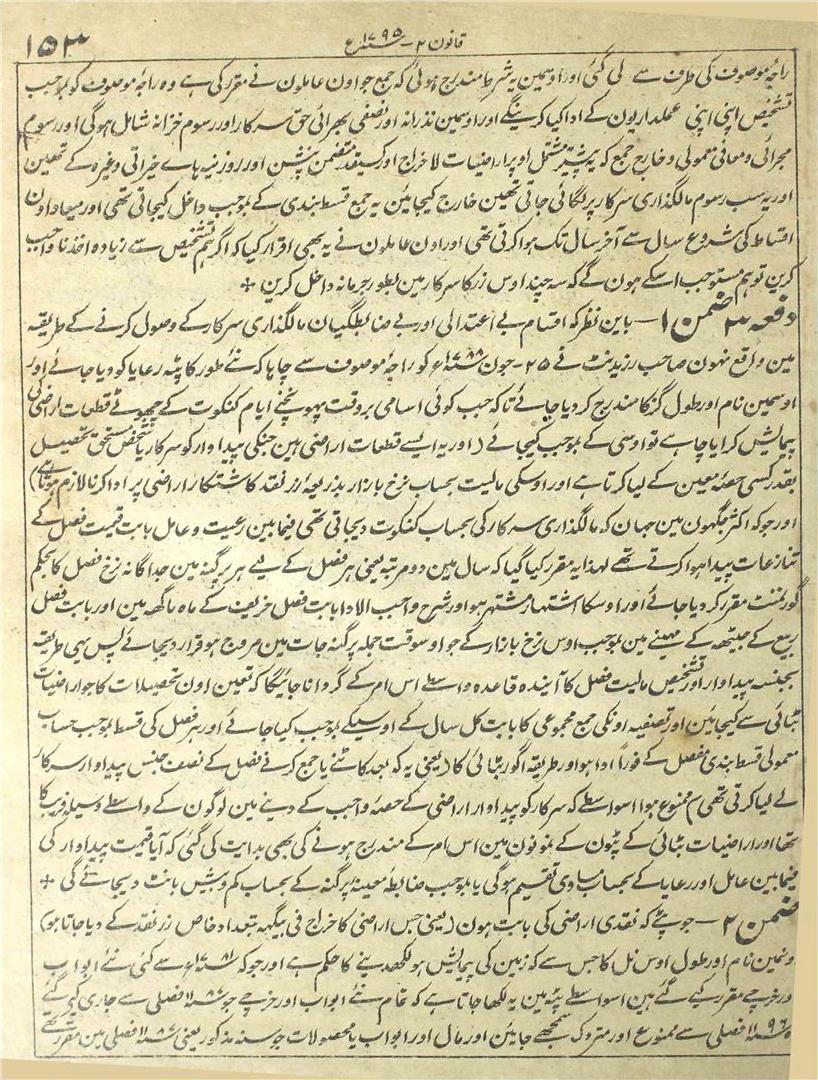 قانون ۲ - ۱۷۹۵ع
۱۵۳
راجہ موصوف کی طرف سے لی گئی اور اوسمین یہ شرط مندرج ہوئی کہ جمع جو اون عاملون نے مقرر کی ہے وہ راجہ موصوف کو بموجب
تشخیص اپنی اپنی عملداریون کے ادا کیا کرینگے اور اوسمین نذرانہ اور نصفی بھرائی حق سرکار اور رسوم خزانہ شامل ہوگی اور رسوم
مجرائی و معافی معمولی و خارج جمع کہ پیشتر مشتمل اوپر اراضیات لاخراج اور کسیقدر متضمن پنشن اور روزینہ ہاے خیراتی وغیرہ کے تھین
اور یہ سب رسوم مالگذاری سرکار پر لگائی جاتی تھین خارج کیجائین یہ جمع قسط بندی کے بموجب داخل کیجاتی تھی اور میعاد اون
اقساط کی شروع سال سے آخر سال تک ہوا کرتی تھی اور اون عاملون نے یہ بھی اقرار کیا کہ اگر ہم تشخیص سے زیادہ اخذ ناواجب
کرین تو ہم مستوجب اسکے ہون گے کہ سہ چند اوس زر کا سرکار مین بطور جرمانہ داخل کرین +
دفعہ ۳ ضمن ۱ — باین نظر کہ اقسام بے اعتدالی اور بے ضابطگیان مالگذاری سرکار کے وصول کرنے کے طریقہ
مین واقع نہون صاحب رزیڈنٹ نے ۲۵ - جون ۱۷۸۸ع کو راجہ موصوف سے چاہا کہ نئے طور کا پٹہ رعایا کو دیا جائے اور
اوسمین نام اور طول گز کا مندرج کر دیا جائے تاکہ جب کوئی اسامی بروقت پہونچنے ایام کنکوت کے چھوٹے قطعات اراضی کی
پیمایش کرایا چاہے تو اوسی کے بموجب کیجائے (اور یہ ایسے قطعات اراضی ہین جنکی پیداوار کو سرکار یا شخص مستحق تحصیل
بقدر کسی حصہ معین کے لیا کرتا ہے اور اوسکی مالیت بحساب نرخ بازار بذریعہ زر نقد کاشتکار اراضی پر ادا کرنا لازم ہوتا ہے)
اور جو کہ اکثر جگہون مین جہان کہ مالگذاری سرکار کی بحساب کنکوت دیجاتی تھی فیمابین رعیت و عامل بابت قیمت فصل کے
تنازعات پیدا ہوا کرتے تھے لہذا یہ مقرر کیا گیا کہ سال مین دو مرتبہ یعنی ہر فصل کے لیے ہر پرگنہ مین جداگانہ نرخ فصل کا بحکم
گورنمنٹ مقرر کر دیا جائے اور اوسکا اشتہار مشتہر ہو اور شرح واجب الادا بابت فصل خریف کے ماہ ماگھہ مین اور بابت فصل
ربیع کے جیٹھہ کے مہینے مین بموجب اوس نرخ بازار کے جو اوسوقت جملہ پرگنہ جات مین مروج ہو قرار دیجائے پس یہی طریقہ
بجنسہ پیداوار اور تشخیص مالیت فصل کا آیندہ قاعدہ واسطے اس امر کے گردانا جائیگا کہ تعین اون تحصیلات کا جو اراضیات
بٹائی سے کیجائین اور تصفیہ اونکی جمع مجموعی کا بابت کل سال کے اوسیکے بموجب کیا جائے اور ہر فصل کی قسط بموجب حساب
معمولی قسط بندی مفصل کے فوراً ادا ہو اور طریقہ اگور بٹائی کا (یعنی یہ کہ بعد کاٹنے یا جمع کرنے فصل کے نصف جنس پیداوار سرکار
لے لیا کرتی تھی) ممنوع ہوا اسواسطے کہ سرکار کو پیداوار اراضی کے حصہ واجب کے دینے مین لوگون کے واسطے وسیلہ فریب کا
تھا اور اراضیات بٹائی کے پٹون کے نمونون مین اس امر کے مندرج ہونے کی بھی ہدایت کی گئی کہ آیا قیمت پیداوار کی
فیمابین عامل اور رعایا کے بحساب مساوی تقسیم ہوگی یا بموجب ضابطہ معینہ پرگنہ کے بحساب کم و بیش بانٹ دیجائے گی +
ضمن ۲ — جو پٹے کہ نقدی اراضی کی بابت ہون (یعنی جس اراضی کا خراج فی بیگہہ بتعداد خاص زر نقد کے دیا جاتا ہو)
ونمین نام اور طول اوس نل کا جس سے کہ زمین کی پیمایش ہو لکھہ دینے کا حکم ہے اور جو کہ ۱۷۸۱ع سے کئی نئے ابواب
ور خرچے مقرر کیے گئے ہین اسواسطے پٹہ مین یہ لکھا جاتا ہے کہ تمام نئے ابواب اور خرچے جو ۱۱۸۷ فصلی سے جاری کیے گئے
۱۱۹۶ فصلی سے ممنوع اور متروک سمجھے جائین اور مال اور ابواب یا محصولات جو سنہ مذکور یعنی ۱۱۸۷ فصلی مین مقرر تھے